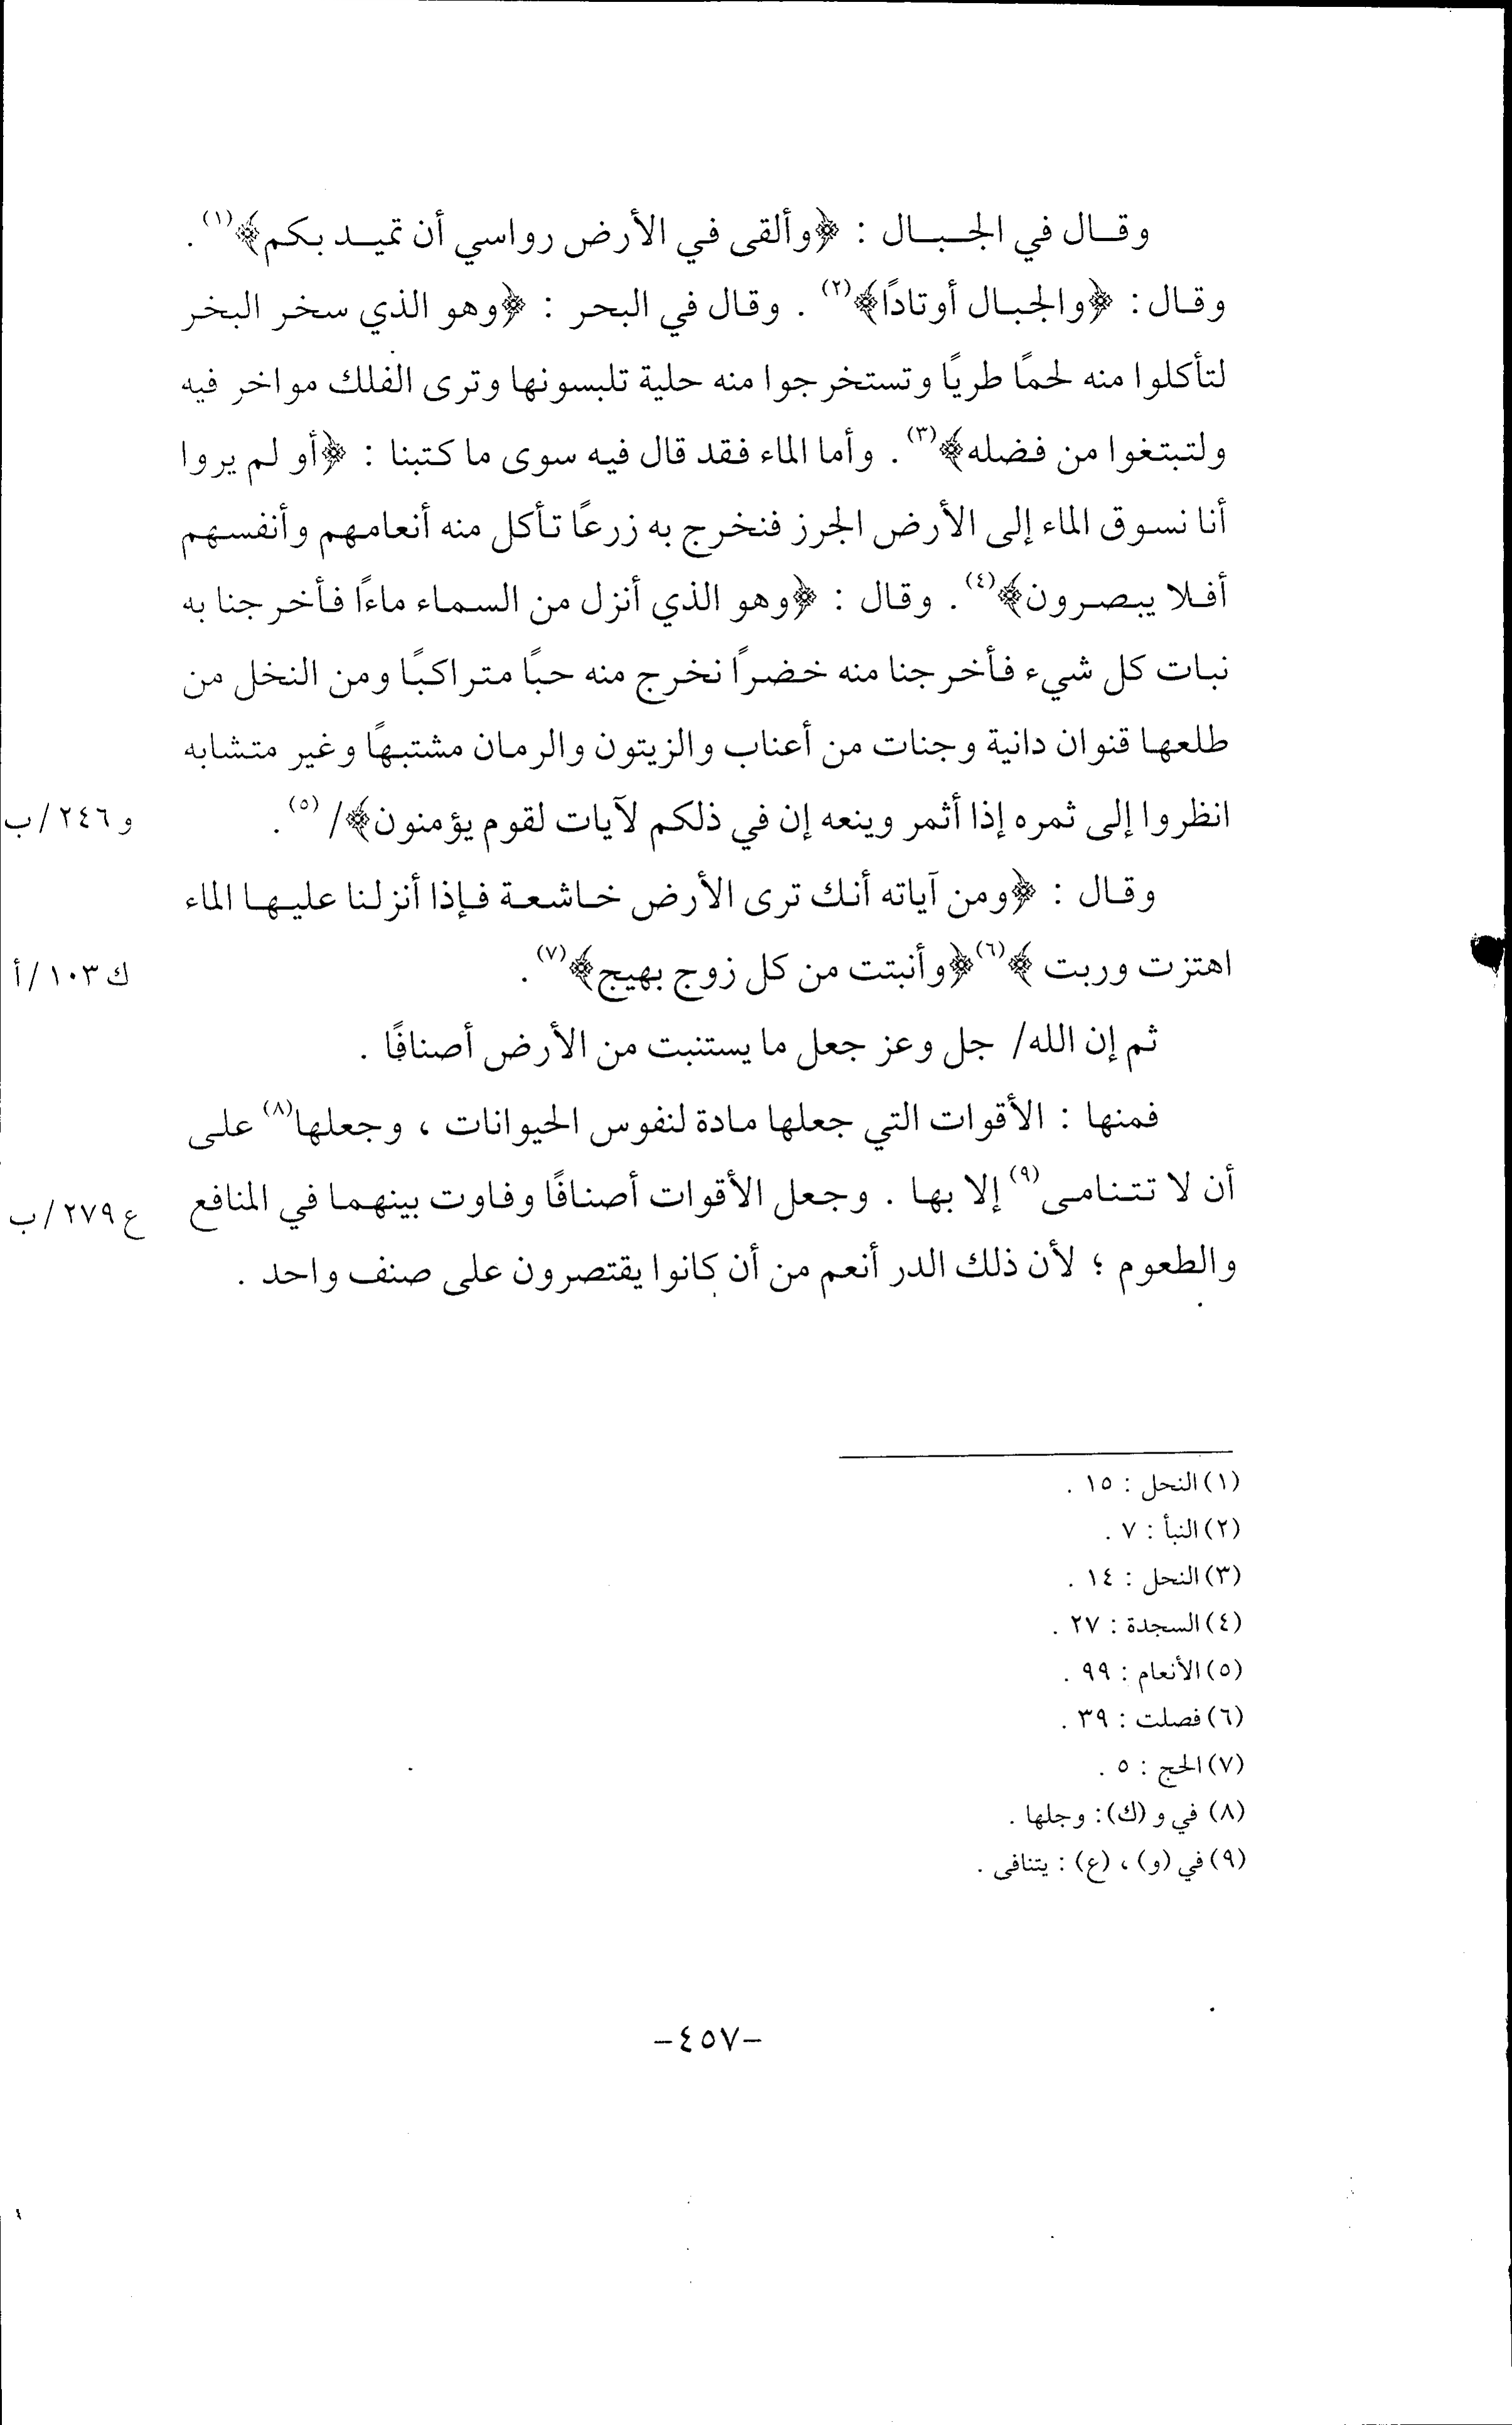 وقال في الجبال : ﴿وألقى في الأرض رواسي أن تميد بكم﴾(١) .
وقال : ﴿والجبال أوتادًا﴾(٢) . وقال في البحر : ﴿وهو الذي سخر البخر
لتأكلوا منه لحمًا طريًا وتستخرجوا منه حلية تلبسونها وترى الفلك مواخر فيه
ولتبتغوا من فضله﴾(٣) . وأما الماء فقد قال فيه سوى ما كتبنا : ﴿أو لم يروا
أنا نسوق الماء إلى الأرض الجرز فنخرج به زرعًا تأكل منه أنعامهم وأنفسهم
أفلا يبصرون﴾(٤) . وقال : ﴿وهو الذي أنزل من السماء ماءًا فأخرجنا به
نبات كل شيء فأخرجنا منه خضرًا نخرج منه حبًا متراكبًا ومن النخل من
طلعها قنوان دانية وجنات من أعناب والزيتون والرمان مشتبهًا وغير متشابه
انظروا إلى ثمره إذا أثمر وينعه إن في ذلكم لآيات لقوم يؤمنون﴾/ (٥) .
و ٢٤٦/ب
وقال : ﴿ومن آياته أنك ترى الأرض خاشعة فإذا أنزلنا عليها الماء
اهتزت وربت ﴾(٦) ﴿وأنبتت من كل زوج بهيج﴾(٧) .
ك ١٠٣/أ
ثم إن الله/ جل وعز جعل ما يستنبت من الأرض أصنافًا .
فمنها : الأقوات التي جعلها مادة لنفوس الحيوانات ، وجعلها(٨) على
أن لا تتنامى(٩) إلا بها . وجعل الأقوات أصنافًا وفاوت بينهما في المنافع
ع ٢٧٩/ب
والطعوم ؛ لأن ذلك الدر أنعم من أن كانوا يقتصرون على صنف واحد .
(١) النحل : ١٥ .
(٢) النبأ : ٧ .
(٣) النحل : ١٤ .
(٤) السجدة : ٢٧ .
(٥) الأنعام : ٩٩ .
(٦) فصلت : ٣٩ .
(٧) الحج : ٥ .
(٨) في و (ك) : وجلها .
(٩) في (و) ، (ع) : يتنافى .
-٤٥٧-